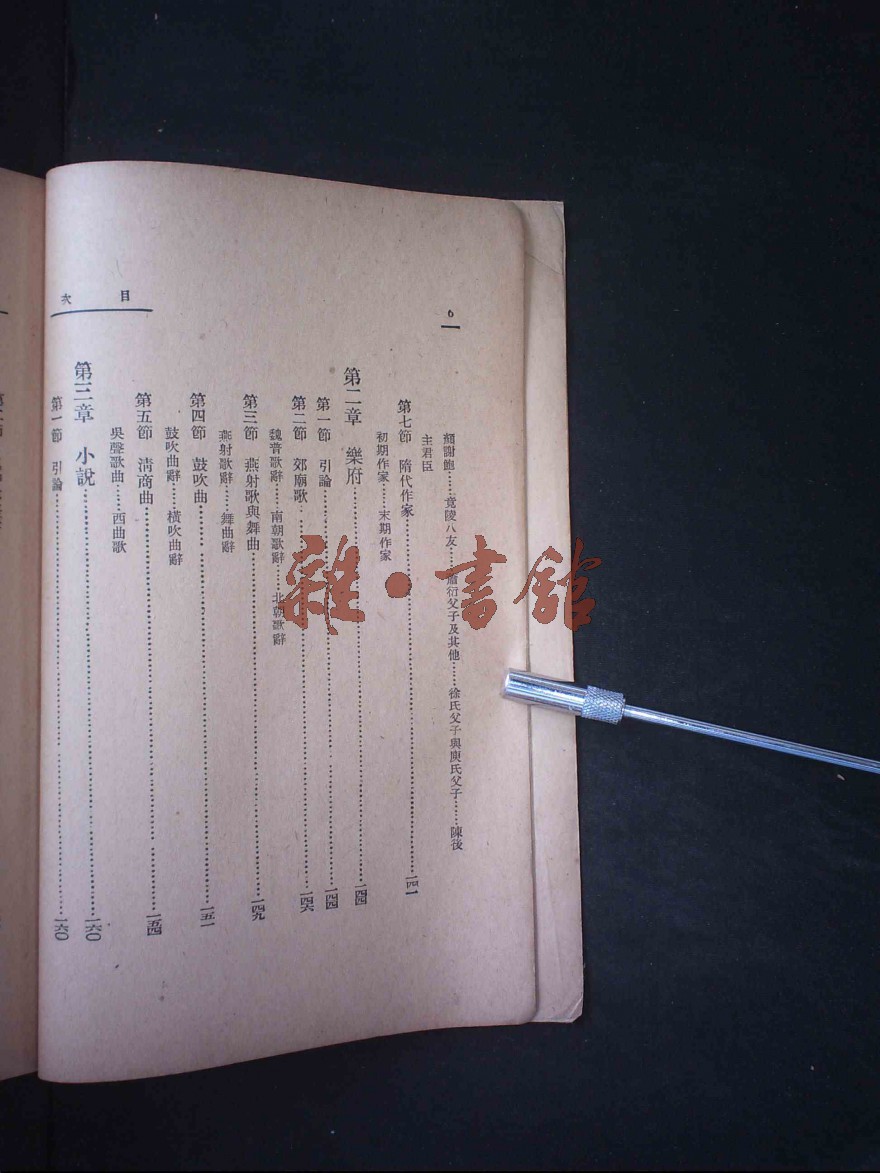 目次
6
顏謝鮑……竟陵八友……蕭衍父子及其他……徐氏父子與庾氏父子……陳後
主君臣
第七節 隋代作家……一四一
初期作家……末期作家
第二章 樂府……一四四
第一節 引論……一四四
第二節 郊廟歌……一四六
魏晉歌辭……南朝歌辭……北朝歌辭
第三節 燕射歌與舞曲……一四九
燕射歌辭……舞曲辭
第四節 鼓吹曲……一五一
鼓吹曲辭……橫吹曲辭
第五節 清商曲……一五四
吳聲歌曲……西曲歌
第三章 小說……一六〇
第一節 引論……一六〇
雜·書館